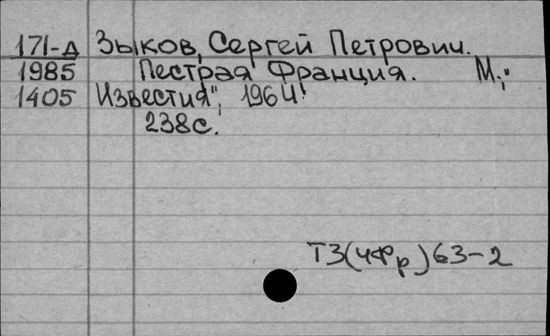 171-д Зыков, Сергей Петрович.
1985 Пестрая Франция. М.,"
1405 Известия", 1964.
238с.
ТЗ(4Фр)63-2